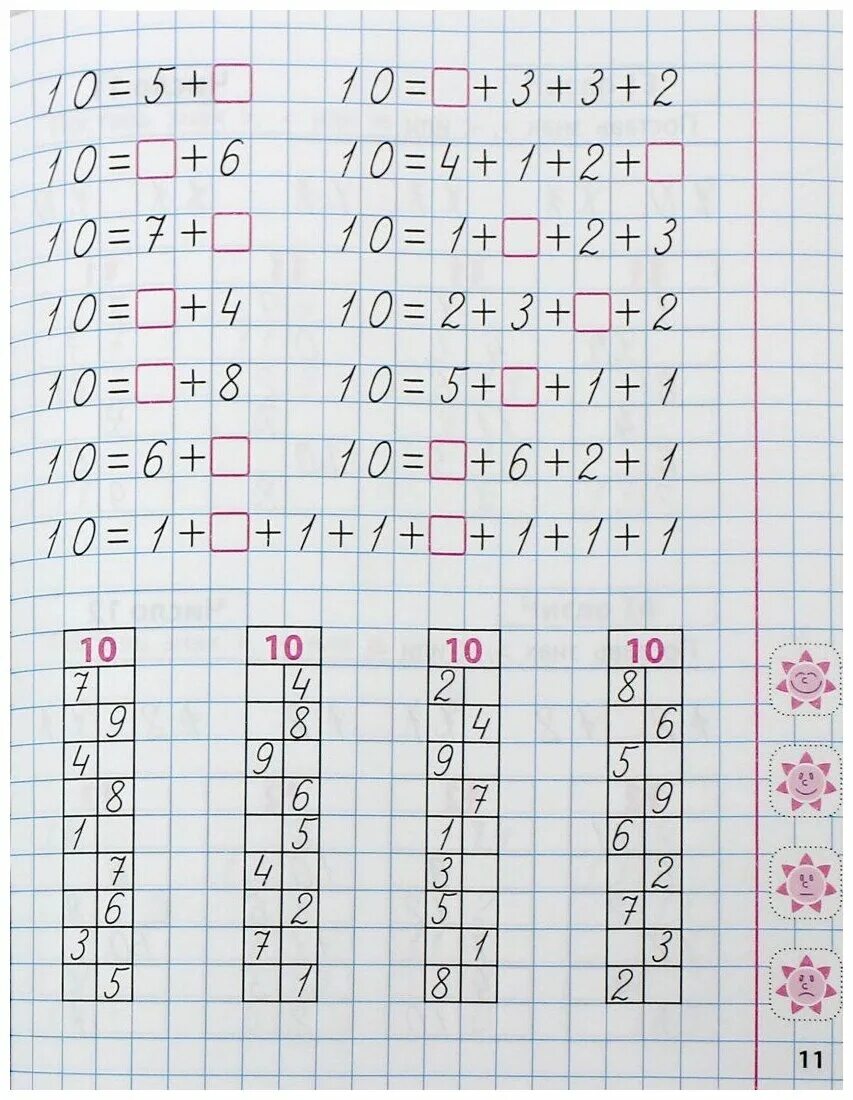 10=5+□ 10=□+3+3+2
10=□+6 10=4+1+2+□
10=7+□ 10=1+□+2+3
10=□+4 10=2+3+□+2
10=□+8 10=5+□+1+1
10=6+□ 10=□+6+2+1
10=1+□+1+1+□+1+1+1
10 10 10 10
7 4 2 8
9 8 4 6
4 9 9 5
8 6 7 9
1 5 1 6
7 4 3 2
6 2 5 7
3 7 1 3
5 1 8 2
11